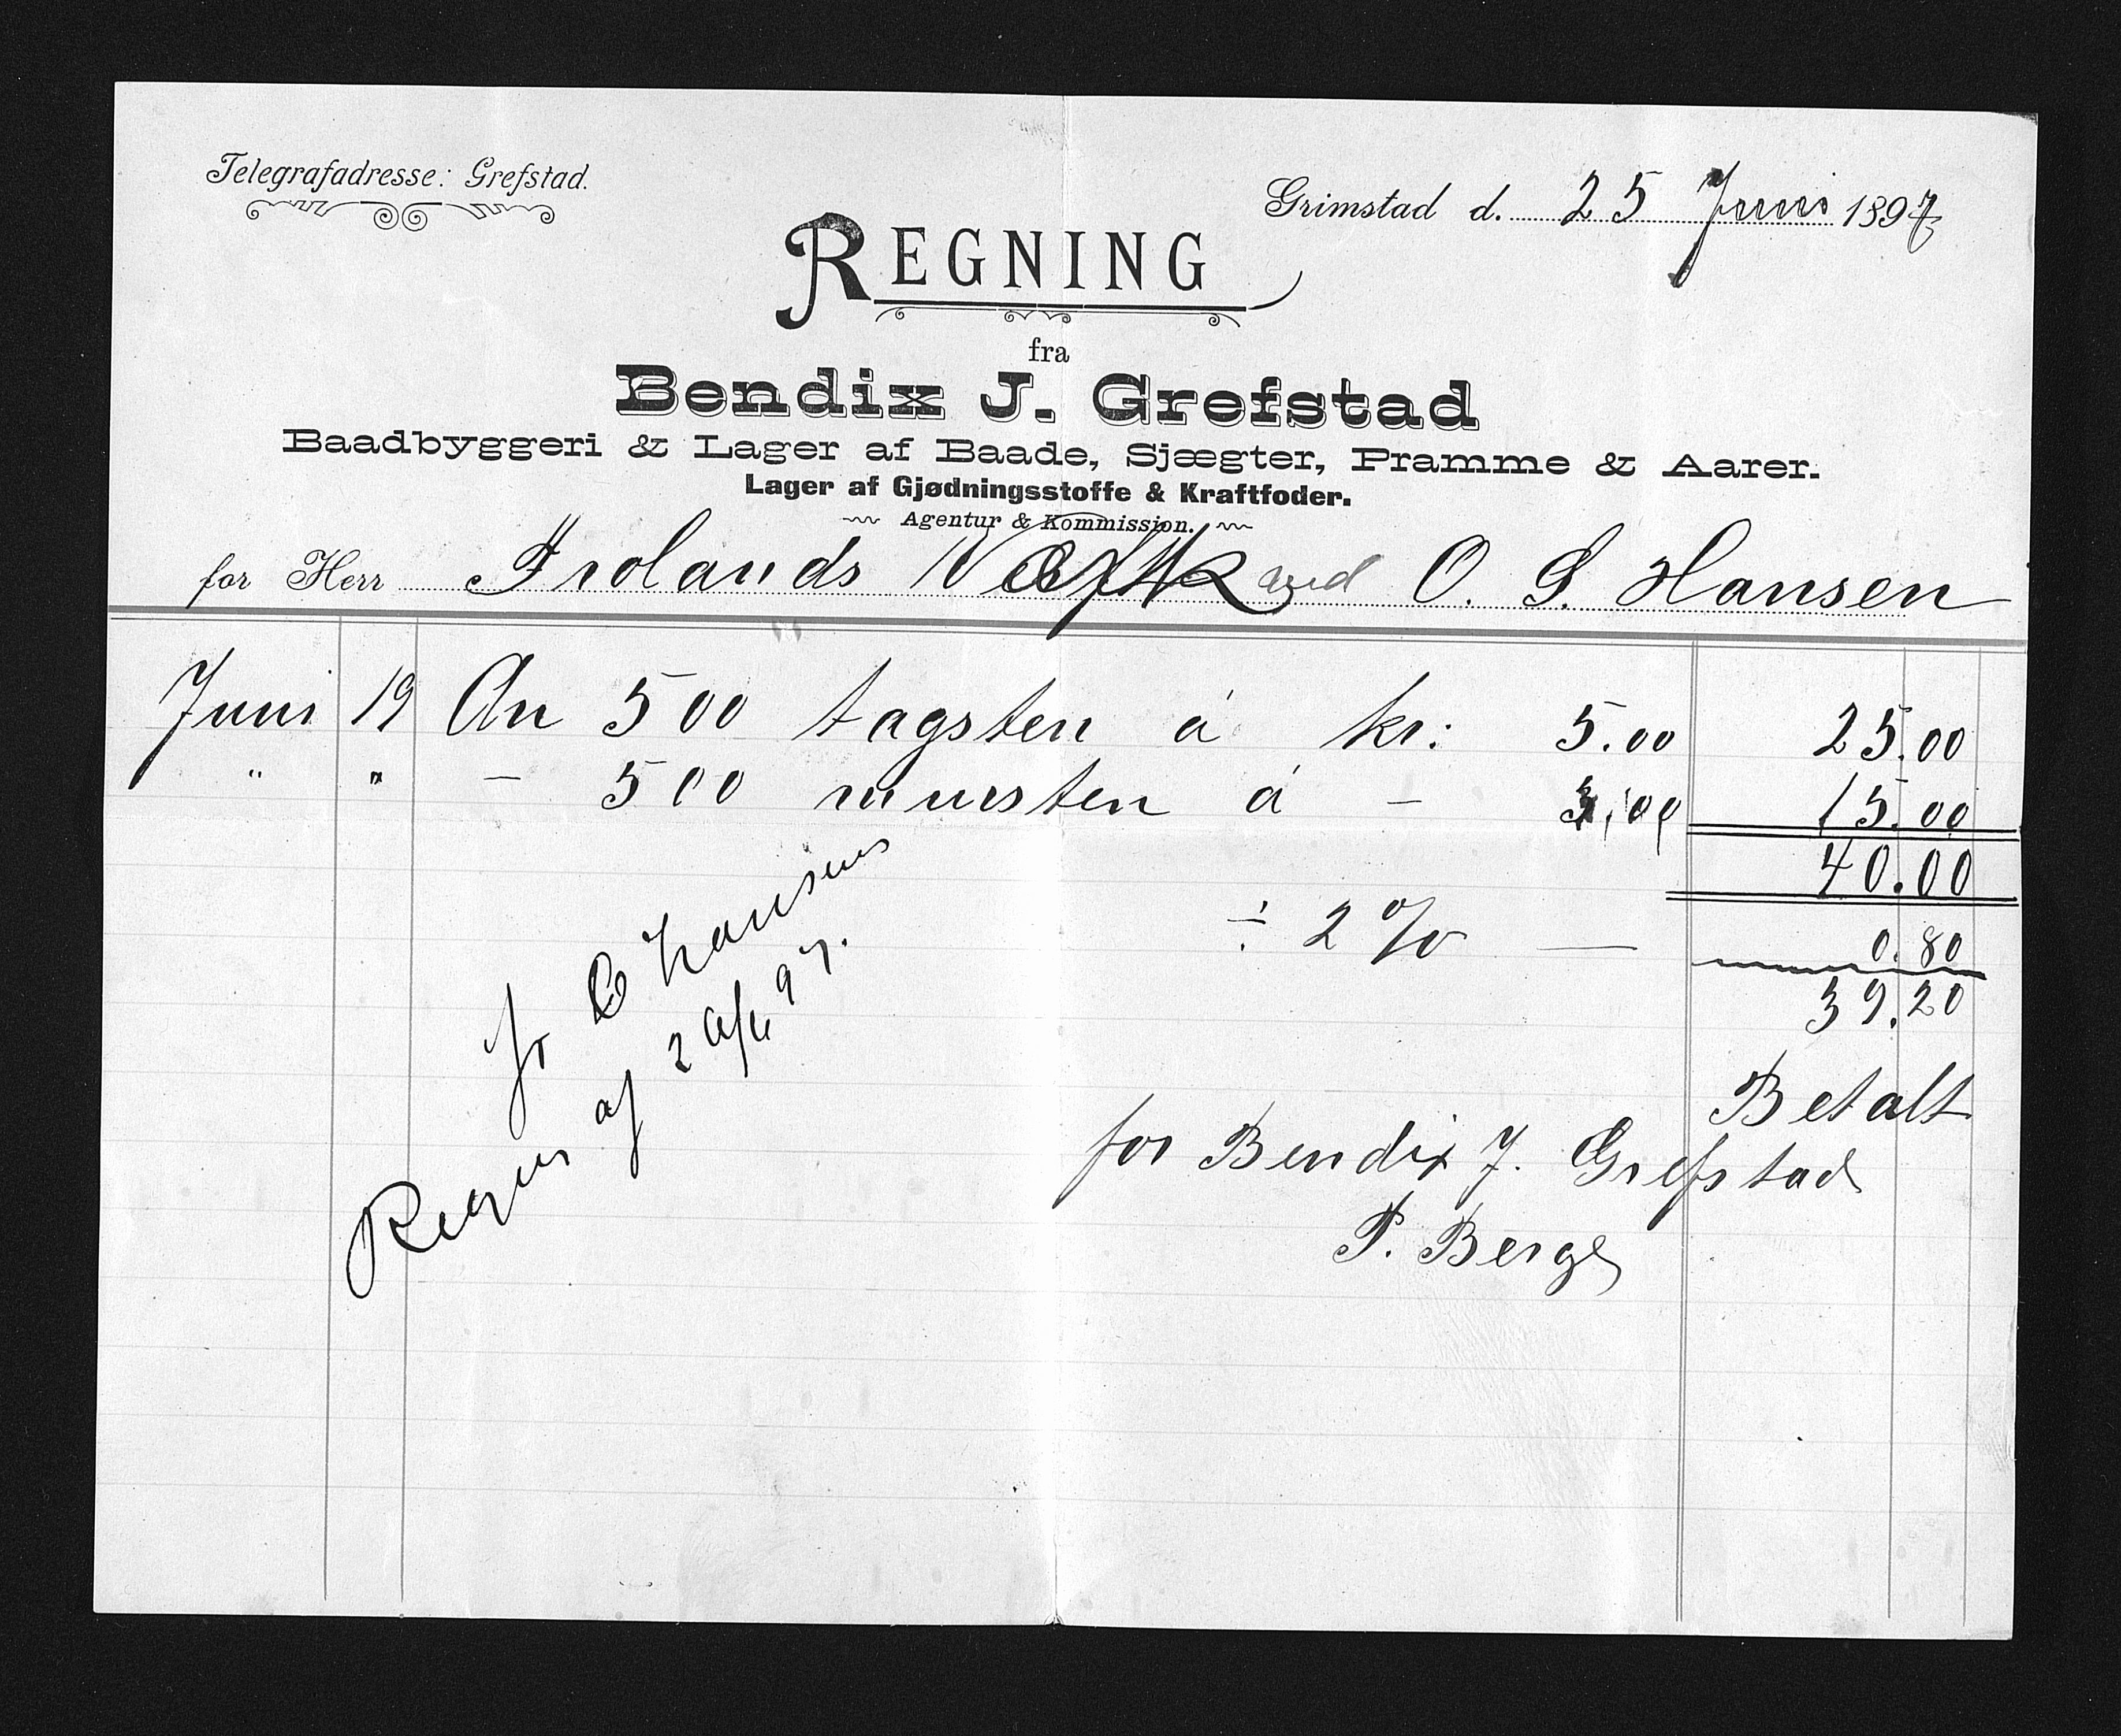 Telegrafadresse: Grefstad.
Grimstad d. 25 Juni 1897
REGNING
fra
Bendix J. Grefstad
Baadbyggeri & Lager af Baade, Sjægter, Pramme & Aarer.
Lager af Gjødningsstoffe & Kraftfoder.
Agentur & Kommission.
for Herr Frolands Værk ved O. S. Hansen
Juni 19 An 500 tagsten á kr: 5.00 25.00
" " - 500 mursten á - 3,00 15.00
40.00
÷ 2 % — 0.80
39.20
Betalt
for Bendix J. Grefstad
P. Berge
fr O Hansens
Regn af 26/6 97.